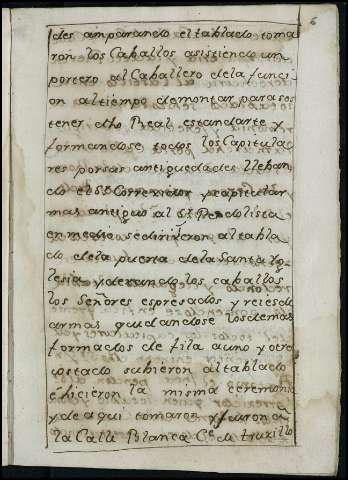 6
des amparando el tablado toma
ron los Caballos asistiendo un
portero al Caballero dela funci
on al tiempo demontar para sos
tener dho Real estandarte y
formandose todos los Capitula
res por sus antiguedades lleban
do el Sr Correxidor y capitular
mas antiguo al Sr Pendolista
en medio se dirixeron al tabla
do dela puerta dela Santa Yg
lesia y dexando los caballos
los Señores espresados y reies de
armas qudandose los demas
formados de fila a uno y otro
costado subieron al tablado
e hicieron la misma ceremonia
y de aqui tomaron y fueron a
la Calle Blanca Ce de truxillo